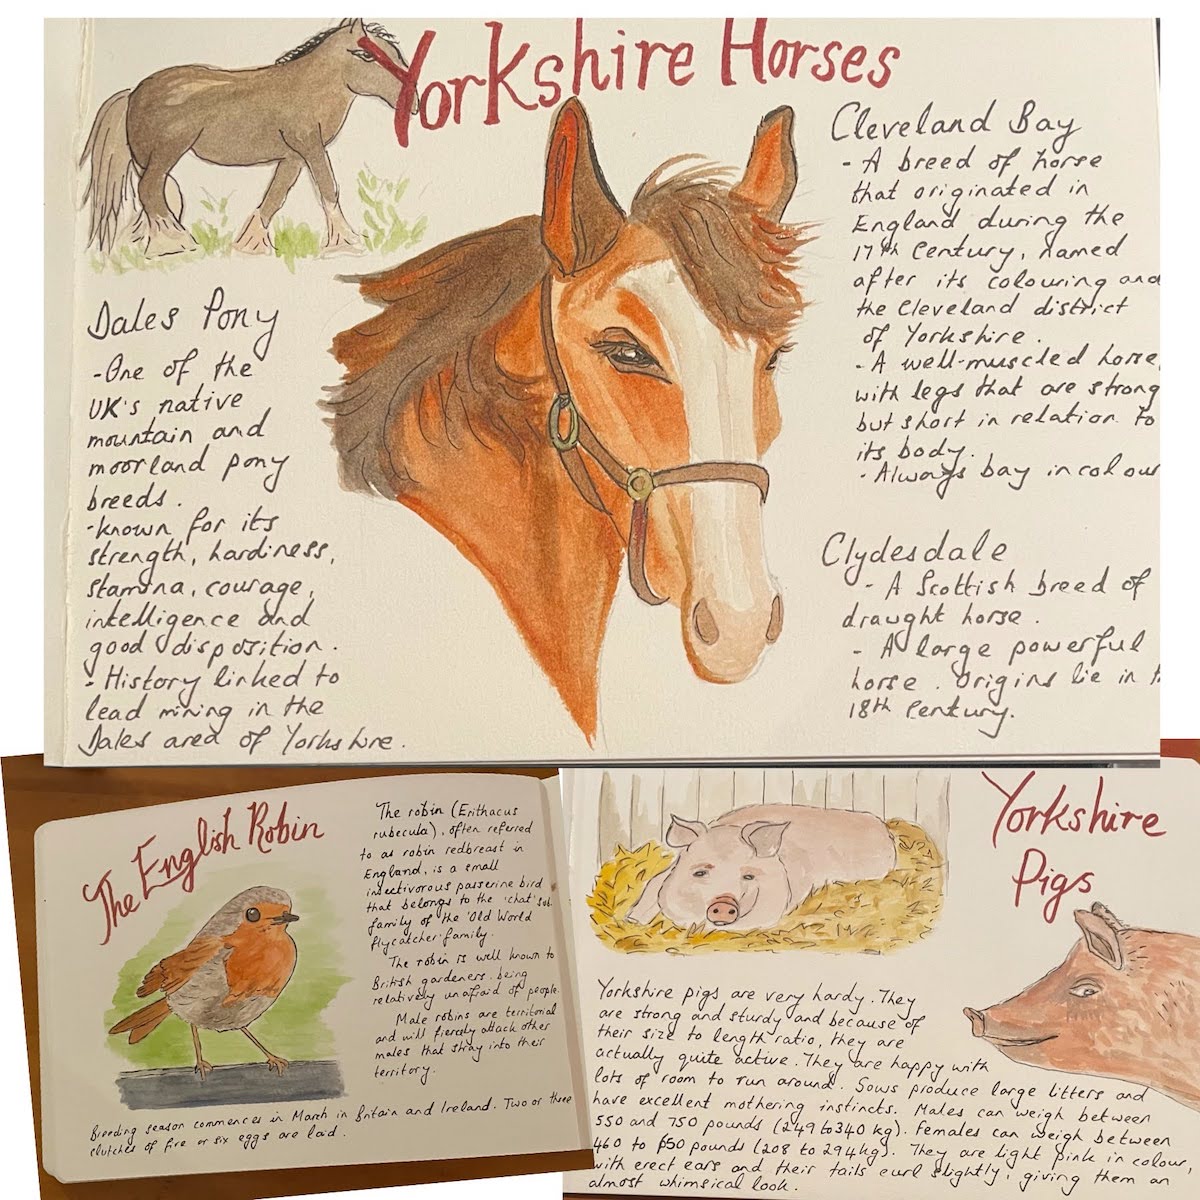 Yorkshire Horses
Dales Pony
-One of the
UK's native
mountain and
moorland pony
breeds.
-Known for its
strength, hardiness,
stamina, courage,
intelligence and
good disposition.
- History linked to
lead mining in the
Dales area of Yorkshire.
Cleveland Bay
- A breed of horse
that originated in
England during the
17th Century, named
after its colouring and
the Cleveland district
of Yorkshire.
- A well-muscled horse,
with legs that are strong
but short in relation to
its body.
- Always bay in colour
Clydesdale
- A Scottish breed of
draught horse.
- A large powerful
horse. Origins lie in
18th Century.
The English Robin
The robin (Erithacus
rubecula), often referred
to as robin redbreast in
England, is a small
insectivorous passerine bird
that belongs to the 'chat' sub.
family of the 'Old World
flycatcher' family.
The robin is well known to
British gardeners, being
relatively unafraid of people.
Male robins are territorial
and will fiercely attack other
males that stray into their
territory.
Breeding season commences in March in Britain and Ireland. Two or three
clutches of five or six eggs are laid.
Yorkshire
Pigs
Yorkshire pigs are very hardy. They
are strong and sturdy and because of
their size to length ratio, they are
actually quite active. They are happy with
lots of room to run around. Sows produce large litters and
have excellent mothering instincts. Males can weigh between
550 and 750 pounds (249 to 340 kg). Females can weigh between
460 to 650 pounds (208 to 294kg). They are light pink in colour,
with erect ears and their tails curl slightly, giving them an
almost whimsical look.